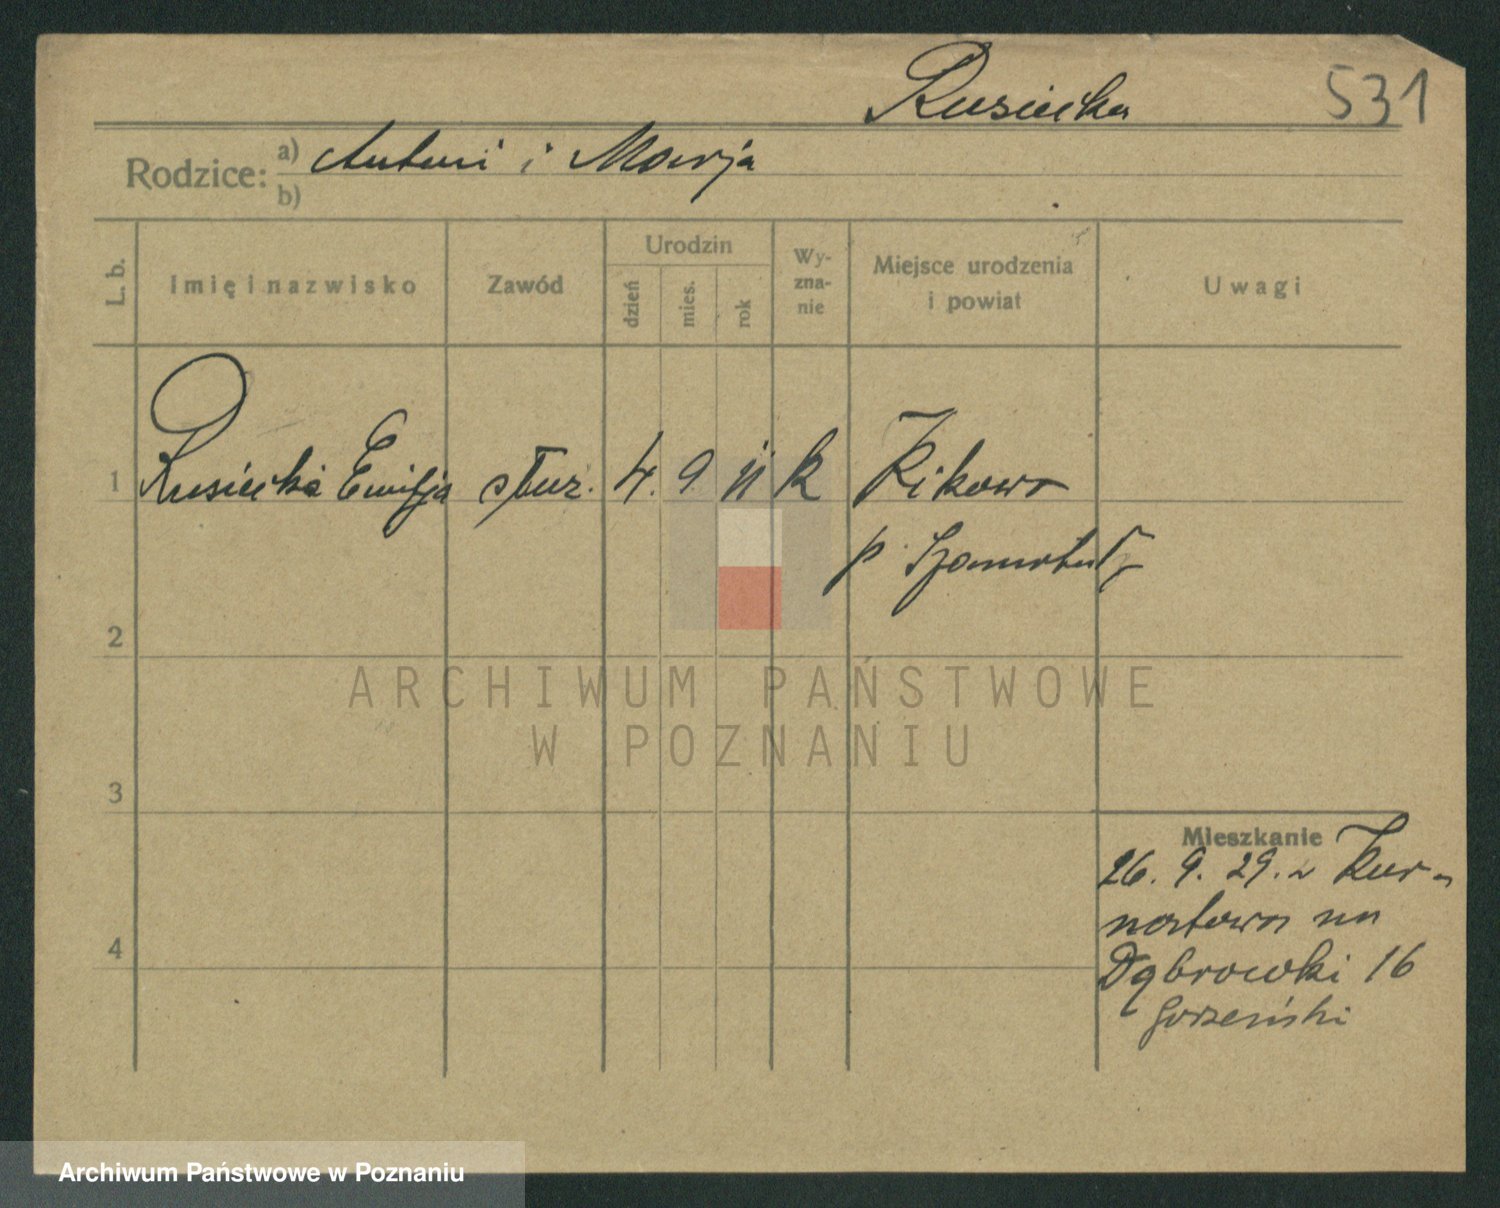 Rusiecka 531
Rodzice: a) Antoni i Marja
b)
L. b. Imię i nazwisko Zawód Urodzin dzień mies. rok Wy-zna-nie Miejsce urodzenia i powiat Uwagi
1 Rusiecka Emilja służ. 4. 9. 11 k Kikowo
p. Szamotuły
2
3
4
Mieszkanie
26. 9. 29. z
na
Dąbrowski 16
Gorzeński
ARCHIWUM PAŃSTWOWE
W POZNANIU
Archiwum Państwowe w Poznaniu